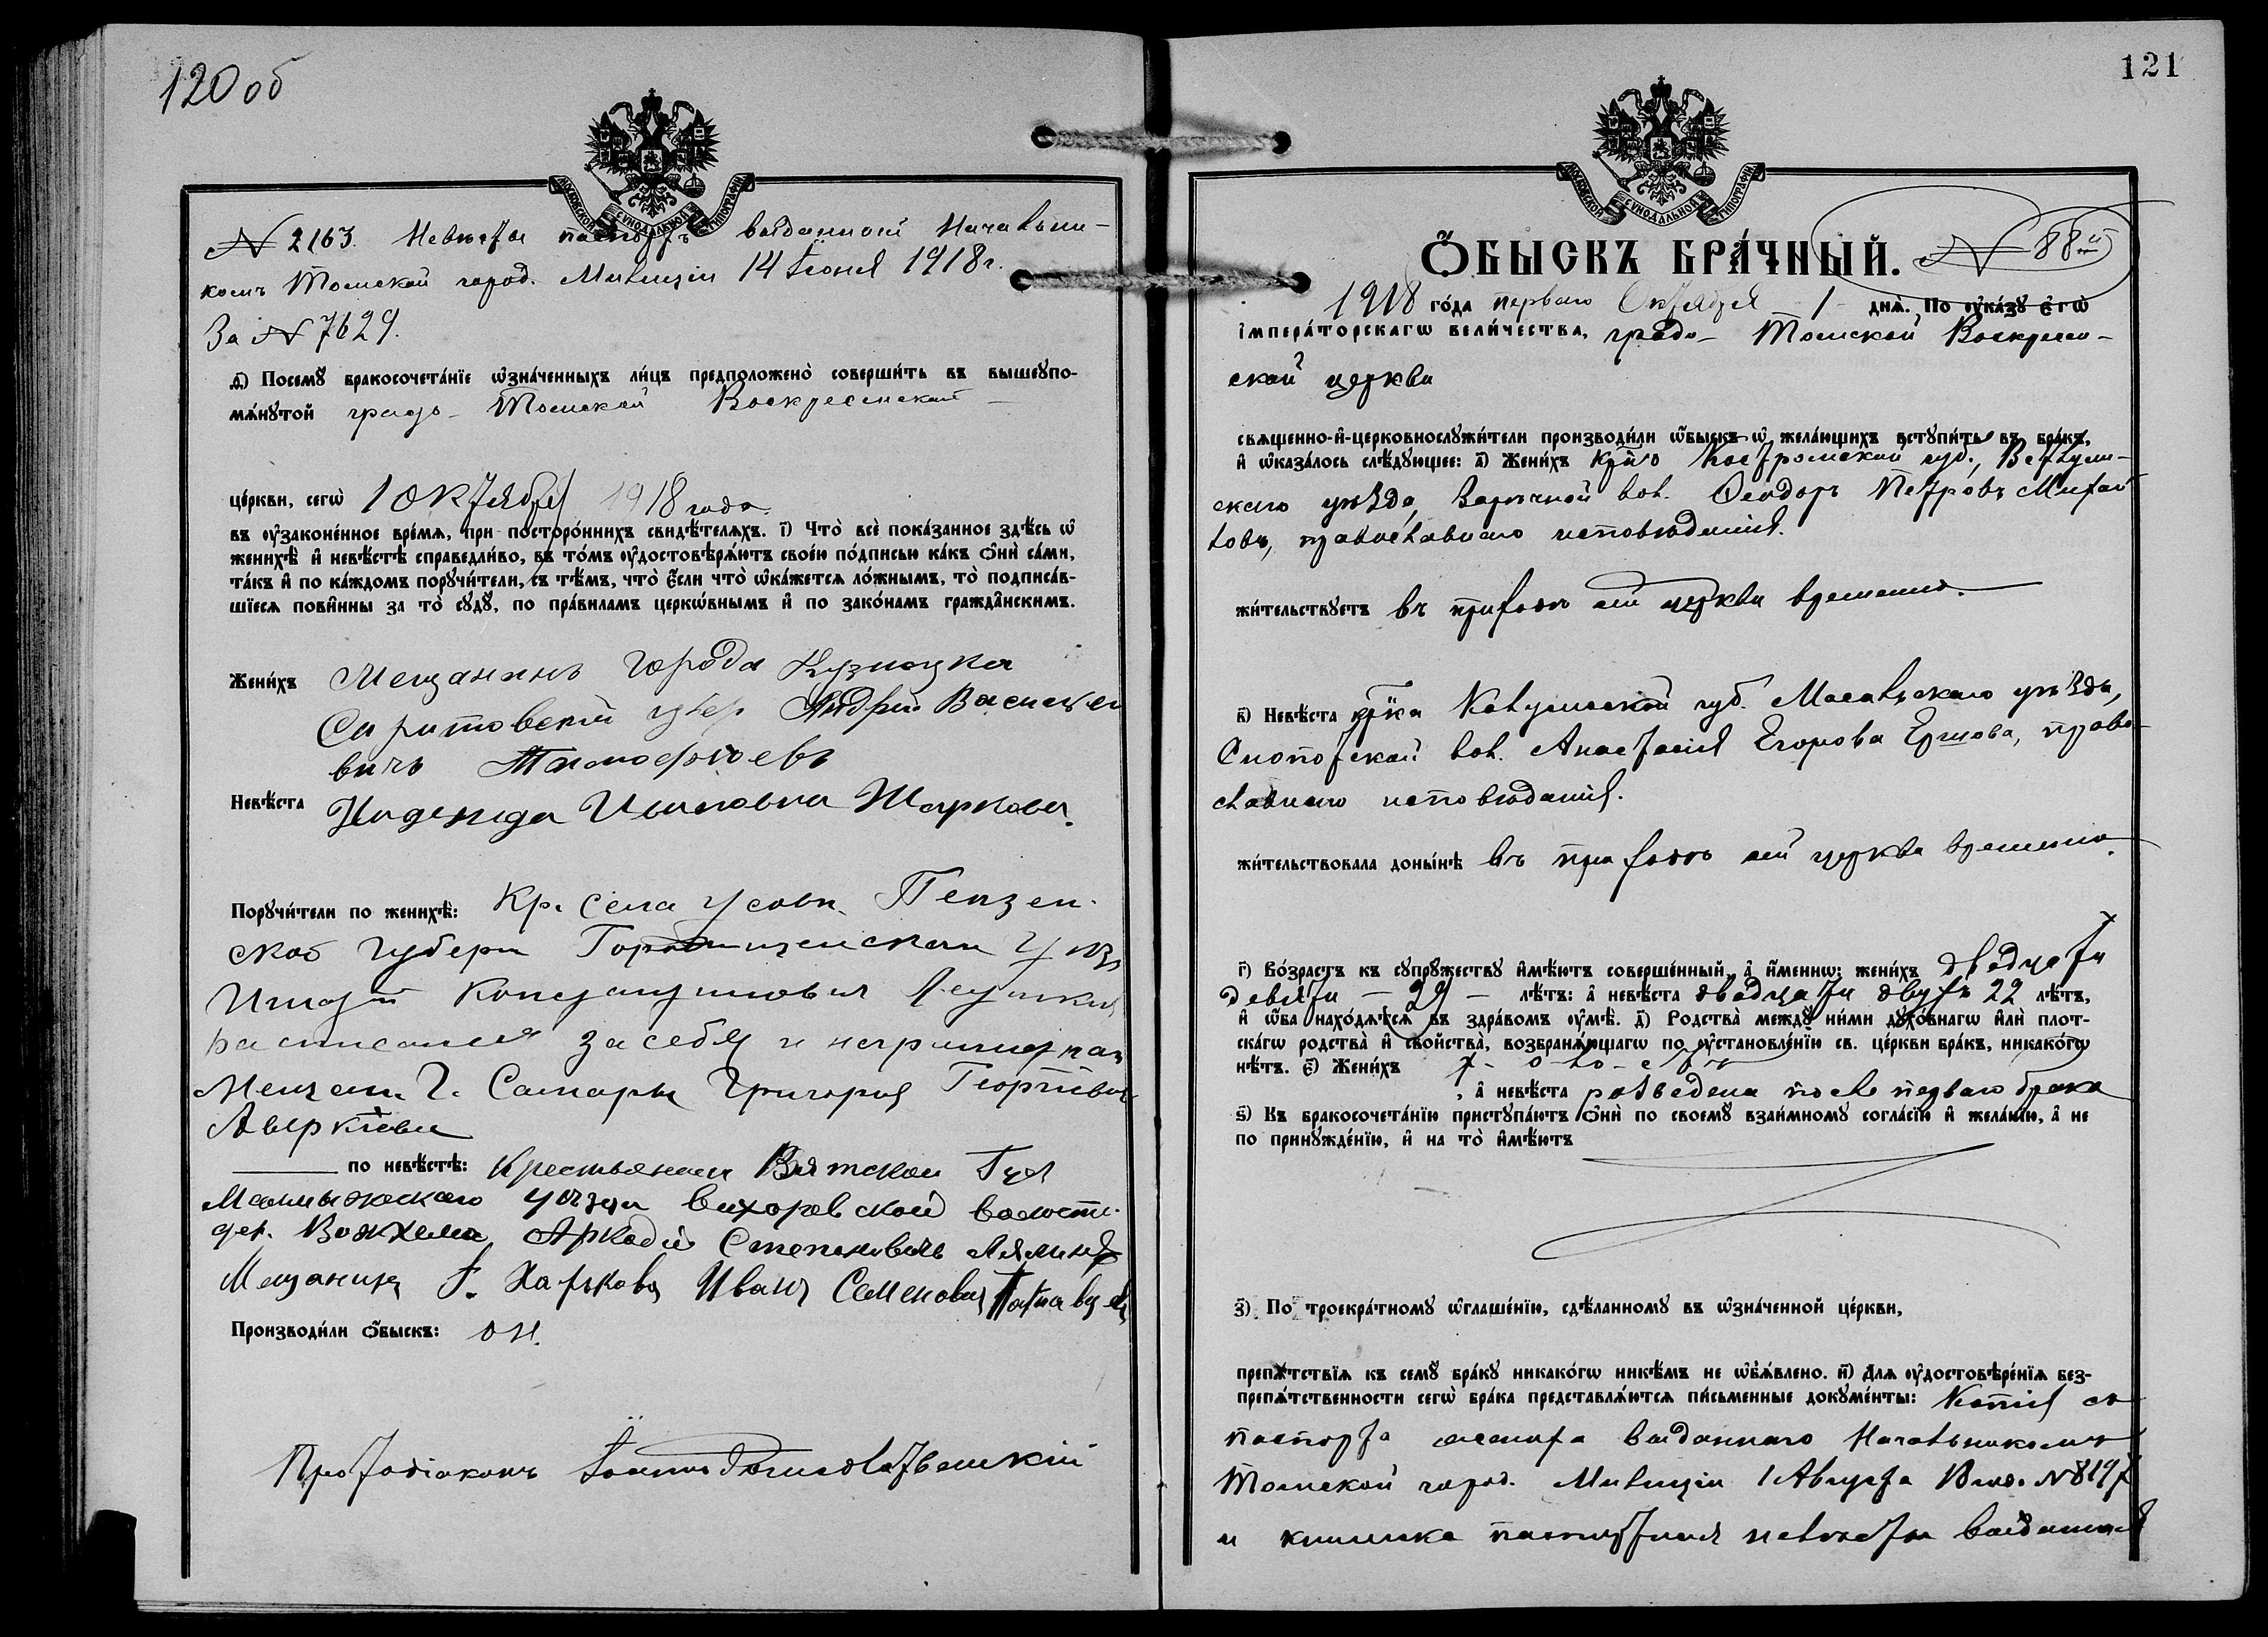 120 об
МОСКОВСКОЙ СУНОДАЛЬНОЙ ТИПОГРАФІИ
№ 2163. Невѣсты паспортъ выданный Начальни-
комъ Томской город. Милиціи 14 Іюня 1918 г.
За № 7629.
д҃) Посемꙋ̀ бракосочета́нїе ѡ҆зна́ченныхъ ли́цъ предположено̀ соверши́ть въ вышеꙋпо-
мѧ́нꙋтой градо- Томской Воскресенской
це́ркви, сегѡ̀ 1 Октября 1918 года
въ ᲂу҆зако́нное вре́мѧ, при посторо́ннихъ свидѣ́телѧхъ. і҃) Что̀ всѐ пока́занное здѣ́сь ѡ҆
женихѣ̀ и҆ невѣ́стѣ справедли́во, въ то́мъ ᲂу҆достовѣрѧ́ютъ свое́ю по́дписью ка́къ ѻ҆нѝ са́ми,
та́къ и҆ по ка́ждомъ порꙋчи́тели, съ тѣ́мъ, что̀ є҆́сли что̀ ѡ҆ка́жетсѧ ло́жнымъ, то̀ подписа́в-
шїесѧ пови́нны за то̀ сꙋдꙋ̀, по пра́виламъ церкѡ́внымъ и҆ по зако́намъ гражда́нскимъ.
Жени́хъ Мещанинъ города Кузнецка
Саратовской губер Андрей Василье
вичъ Тимофѣевъ
Невѣ́ста Надежда Ивановна Жаркова.
Порꙋчи́тели по женихѣ̀: Кр. села Усовки Пензен-
ской губерн Городищенскаи Уѣз
Игнатій Константиновичъ
росписался за себя и неграмотнаго
Мещан. г. Самары Григорія Георгіевича
Аверкіева
по невѣ́стѣ: Крестьянинъ Вятской Губ
Малмыжскаго уѣзда вихоревской волости
дер. Аркадій Степановичъ
Мещанинъ г. Харькова Иванъ Семеновичъ
Производи́ли ѻ҆́быскъ: он.
Протодіаконъ Іоаннъ
121
МОСКОВСКОЙ СУНОДАЛЬНОЙ ТИПОГРАФІИ
ѺБЫСКЪ БРА́ЧНЫЙ. № 88й
1918 го́да перваго Октября 1 днѧ̀. По ᲂу҆ка́зꙋ є҆гѡ̀
і҆мпера́торскагѡ вели́чества, градо- Томской Воскресен-
ской церкви
свѧщенно-и҆-церковнослꙋжи́тели производи́ли ѡ҆́быскъ ѡ҆ жела́ющихъ встꙋпи́ть въ бра́къ,
и҆ ѡ҆каза́лось слѣ́дꙋющее: а҃) Жени́хъ Костромской губ., Ветлуж-
скаго уѣзда, Заречной вол. Ѳеодоръ Петровъ Михай
ловъ, православнаго исповѣданія.
жи́тельствꙋетъ въ приходѣ сей церкви временно.
в҃) Невѣ́ста Калужской губ. Масальскаго уѣзда,
вол. Анастасія Егорова Ершова, право-
славнаго исповѣданія.
жи́тельствовала доны́нѣ въ приходѣ сей церкви временно.
г҃) Во́зрастъ къ сꙋпрꙋ́жествꙋ и҆мѣ́ютъ соверше́нный, а҆ и҆́меннѡ: жени́хъ двадцати
девяти - 29 - лѣ́тъ: а҆ невѣ́ста двадцати двухъ 22 лѣ́тъ,
и҆ ѻ҆́ба нахо́дѧтсѧ въ здра́вомъ ᲂу҆мѣ̀. д҃) Родства̀ междꙋ̀ ни́ми дꙋхо́внагѡ и҆лѝ плот-
ска́гѡ родства̀ и҆ сво́йства̀, возбранѧ́ющагѡ по ᲂу҆становле́нїю св. це́ркви бра́къ, никако́гѡ
нѣ́тъ. є҃) Жени́хъ х - о - ло - с - т - ъ
, а҆ невѣ́ста разведена послѣ перваго брака
ѕ҃) Къ бракосочета́нїю пристꙋпа́ютъ ѻ҆нѝ по своемꙋ̀ взаи́мномꙋ согла́сїю и҆ жела́нїю, а҆ не
по принꙋжде́нїю, и҆ на то̀ и҆мѣ́ютъ
з҃) По троекра́тномꙋ ѡ҆глаше́нїю, сдѣ́ланномꙋ въ ѡ҆зна́ченной це́ркви,
препѧ́тствїѧ къ семꙋ̀ бра́кꙋ никако́гѡ никѣ́мъ не ѡ҆б̾ѧ́влено. и҃) Длѧ ᲂу҆достовѣре́нїѧ без-
препѧ́тственности сегѡ̀ бра́ка представлѧ́ютсѧ пи́сьменные докꙋме́нты: Копія съ
паспорта жениха выданнаго Начальникомъ
Томской город. Милиціи 1 Августа № 8197
и книжка паспортная невѣсты выданная